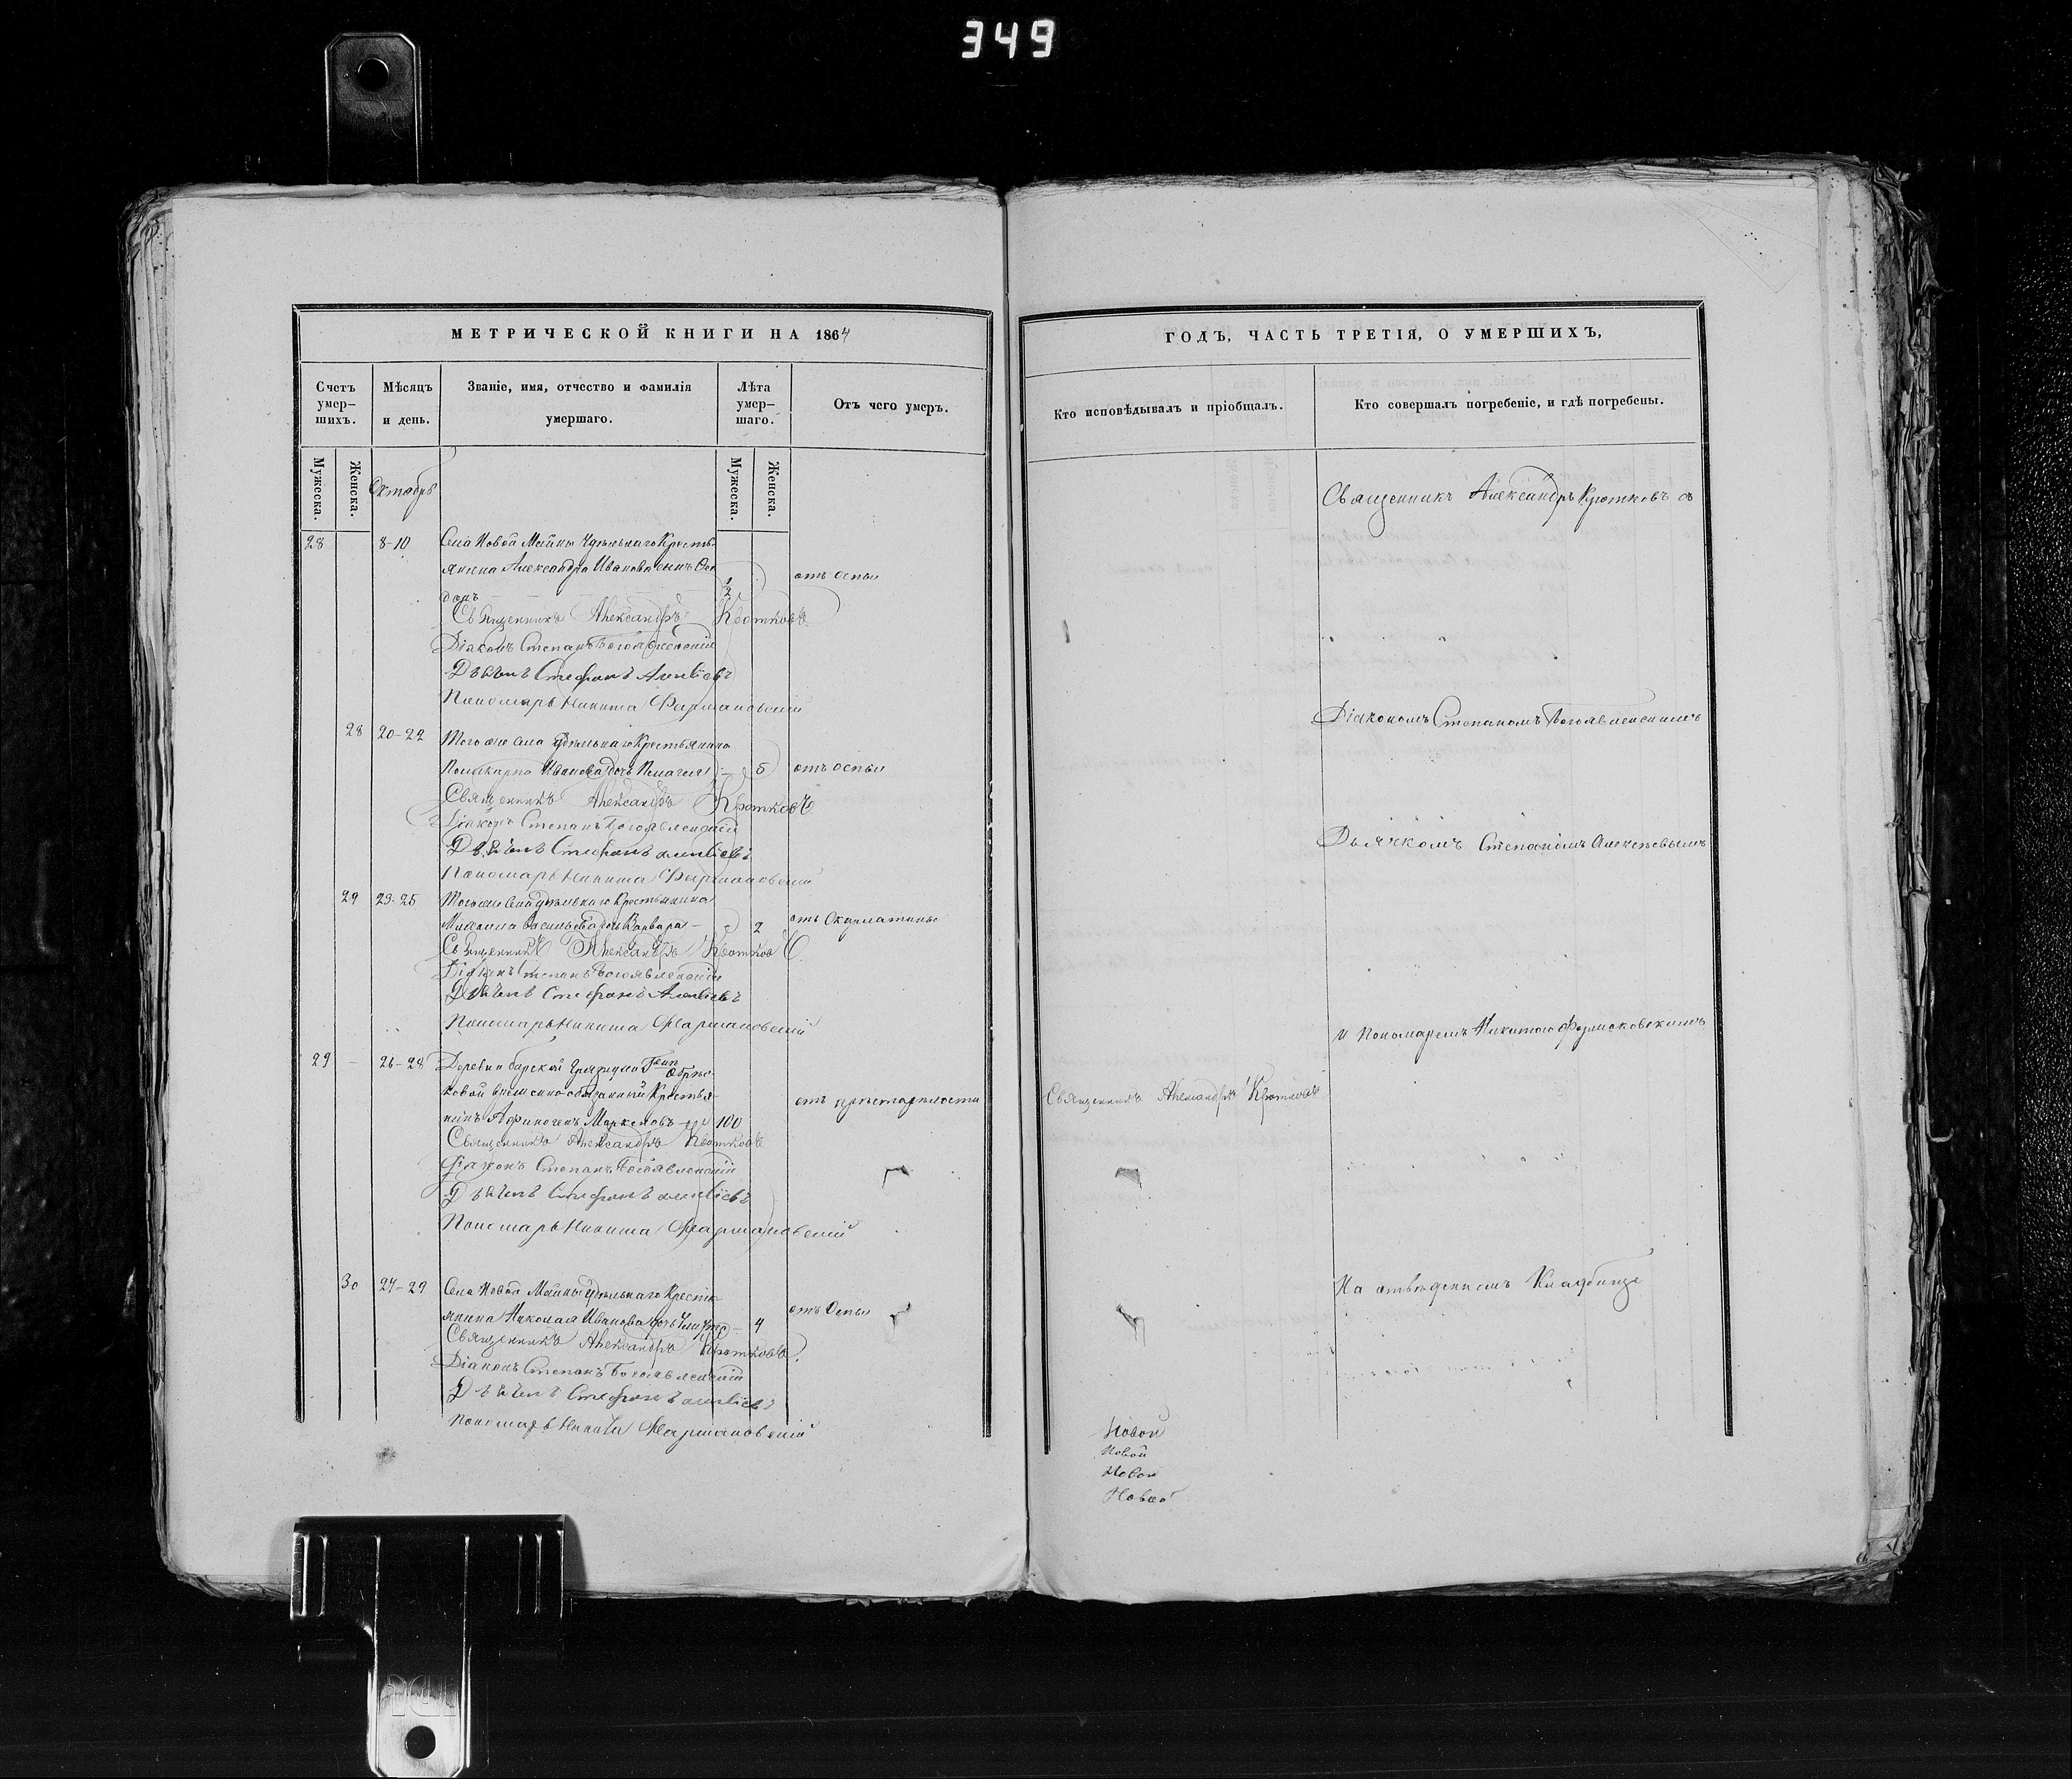 349
МЕТРИЧЕСКОЙ КНИГИ НА 1864
Счетъ умер-шихъ.
Мѣсяцъ и день.
Званіе, имя, отчество и фамилія умершаго.
Лѣта умер-шаго.
Отъ чего умеръ.
Мужеска.
Женска.
Октябрь
Мужеска.
Женска.
28 8-10 Села Новой Майны Удѣльнаго Кресть
янина Александра Иванова сынъ Ѳео
доръ 1/2 отъ оспы
Священникъ Александръ Кротковъ
Діаконъ Степанъ Богоявленскій
Дьячекъ Стефанъ Алексѣевъ
Пономарь Никита Фармаковскій
28 20-22 Того же села Удѣльнаго Крестьянина
Поликарпа Иванова дочь Пелагия 5 отъ оспы
Священникъ Александръ Кротковъ
Діаконъ Степанъ Богоявленскій
Дьячекъ Стефанъ Алексѣевъ
Пономарь Никита Фармаковскій
29 23-25 Того же Села Удѣльнаго Крестьянина
Михаила Васильева дочь Варвара 2 отъ Скарлатины
Священникъ Александръ Кротковъ
Діаконъ Степанъ Богоявленскій
Дьячекъ Стефанъ Алексѣевъ
Пономарь Никита Фармаковскій
29 - 26-28 Деревни барской
ковой временно-обязанный Крестья-
нинъ Афиногенъ Маркеловъ 100 отъ престарѣлости
Священникъ Александръ Кротковъ
Діаконъ Степанъ Богоявленскій
Дьячекъ Стефанъ Алексѣевъ
Пономарь Никита Фармаковскій
30 27-29 Села Новой Майны Удѣльнаго Кресть-
янина Николая Иванова дочь 4 отъ Оспы
Священникъ Александръ Кротковъ.
Діаконъ Степанъ Богоявленскій
Дьячекъ Стефанъ Алексѣевъ
Пономарь Никита Фармаковскій
ГОДЪ, ЧАСТЬ ТРЕТІЯ, О УМЕРШИХЪ,
Кто исповѣдывалъ и пріобщалъ.
Кто совершалъ погребеніе, и гдѣ погребены.
Священникъ Александръ Кротковъ съ
Діакономъ Степаномъ Богоявленскимъ
Дьячкомъ Степаномъ Алексѣевымъ
и Пономаремъ Никитою Фармаковскимъ
Священникъ Александръ Кротковъ
На отведенномъ Кладбище
Новой
Новой
Новой
Новой